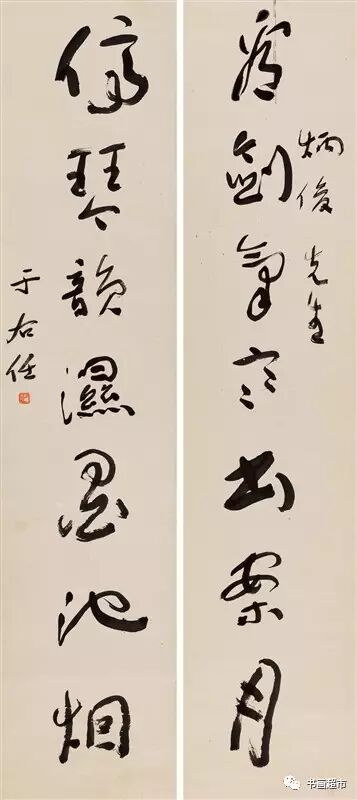 看劍氣寒書案月
炳俊先生
停琴韻濕墨池烟
于右任
书画超市